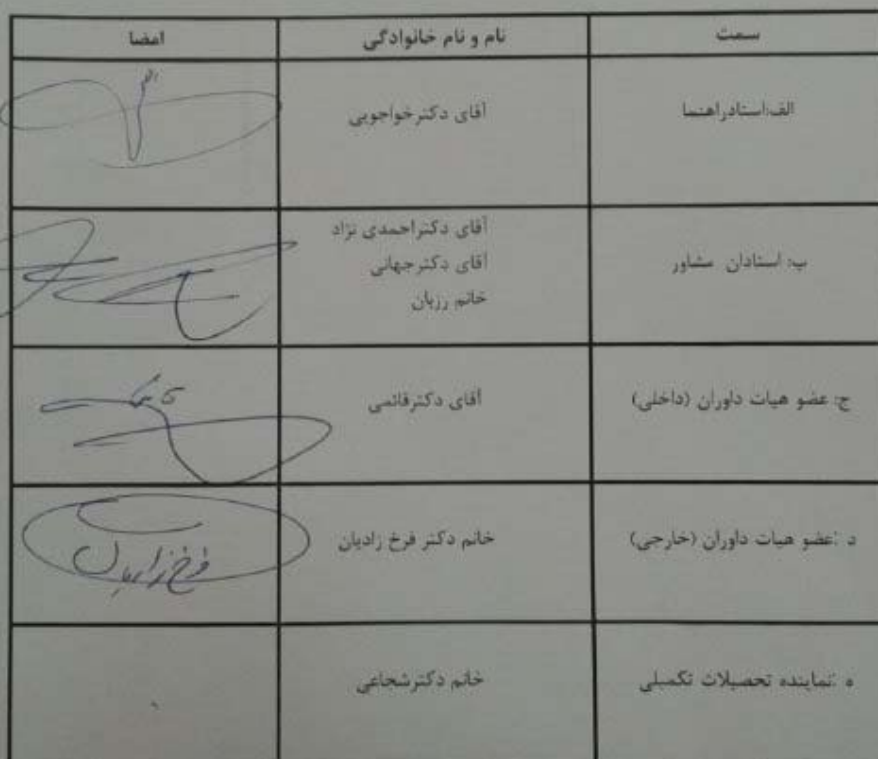 سمت نام و نام خانوادگی امضا
الف:استادراهنما آقای دکترخواجویی
ب: استادان مشاور آقای دکتراحمدی نژاد
آقای دکترجهانی
خانم رزبان
ج: عضو هیات داوران (داخلی) آقای دکترقائمی
د :عضو هیات داوران (خارجی) خانم دکتر فرخ زادیان
فرخ زادیان
ه :نماینده تحصیلات تکمیلی خانم دکترشجاعی